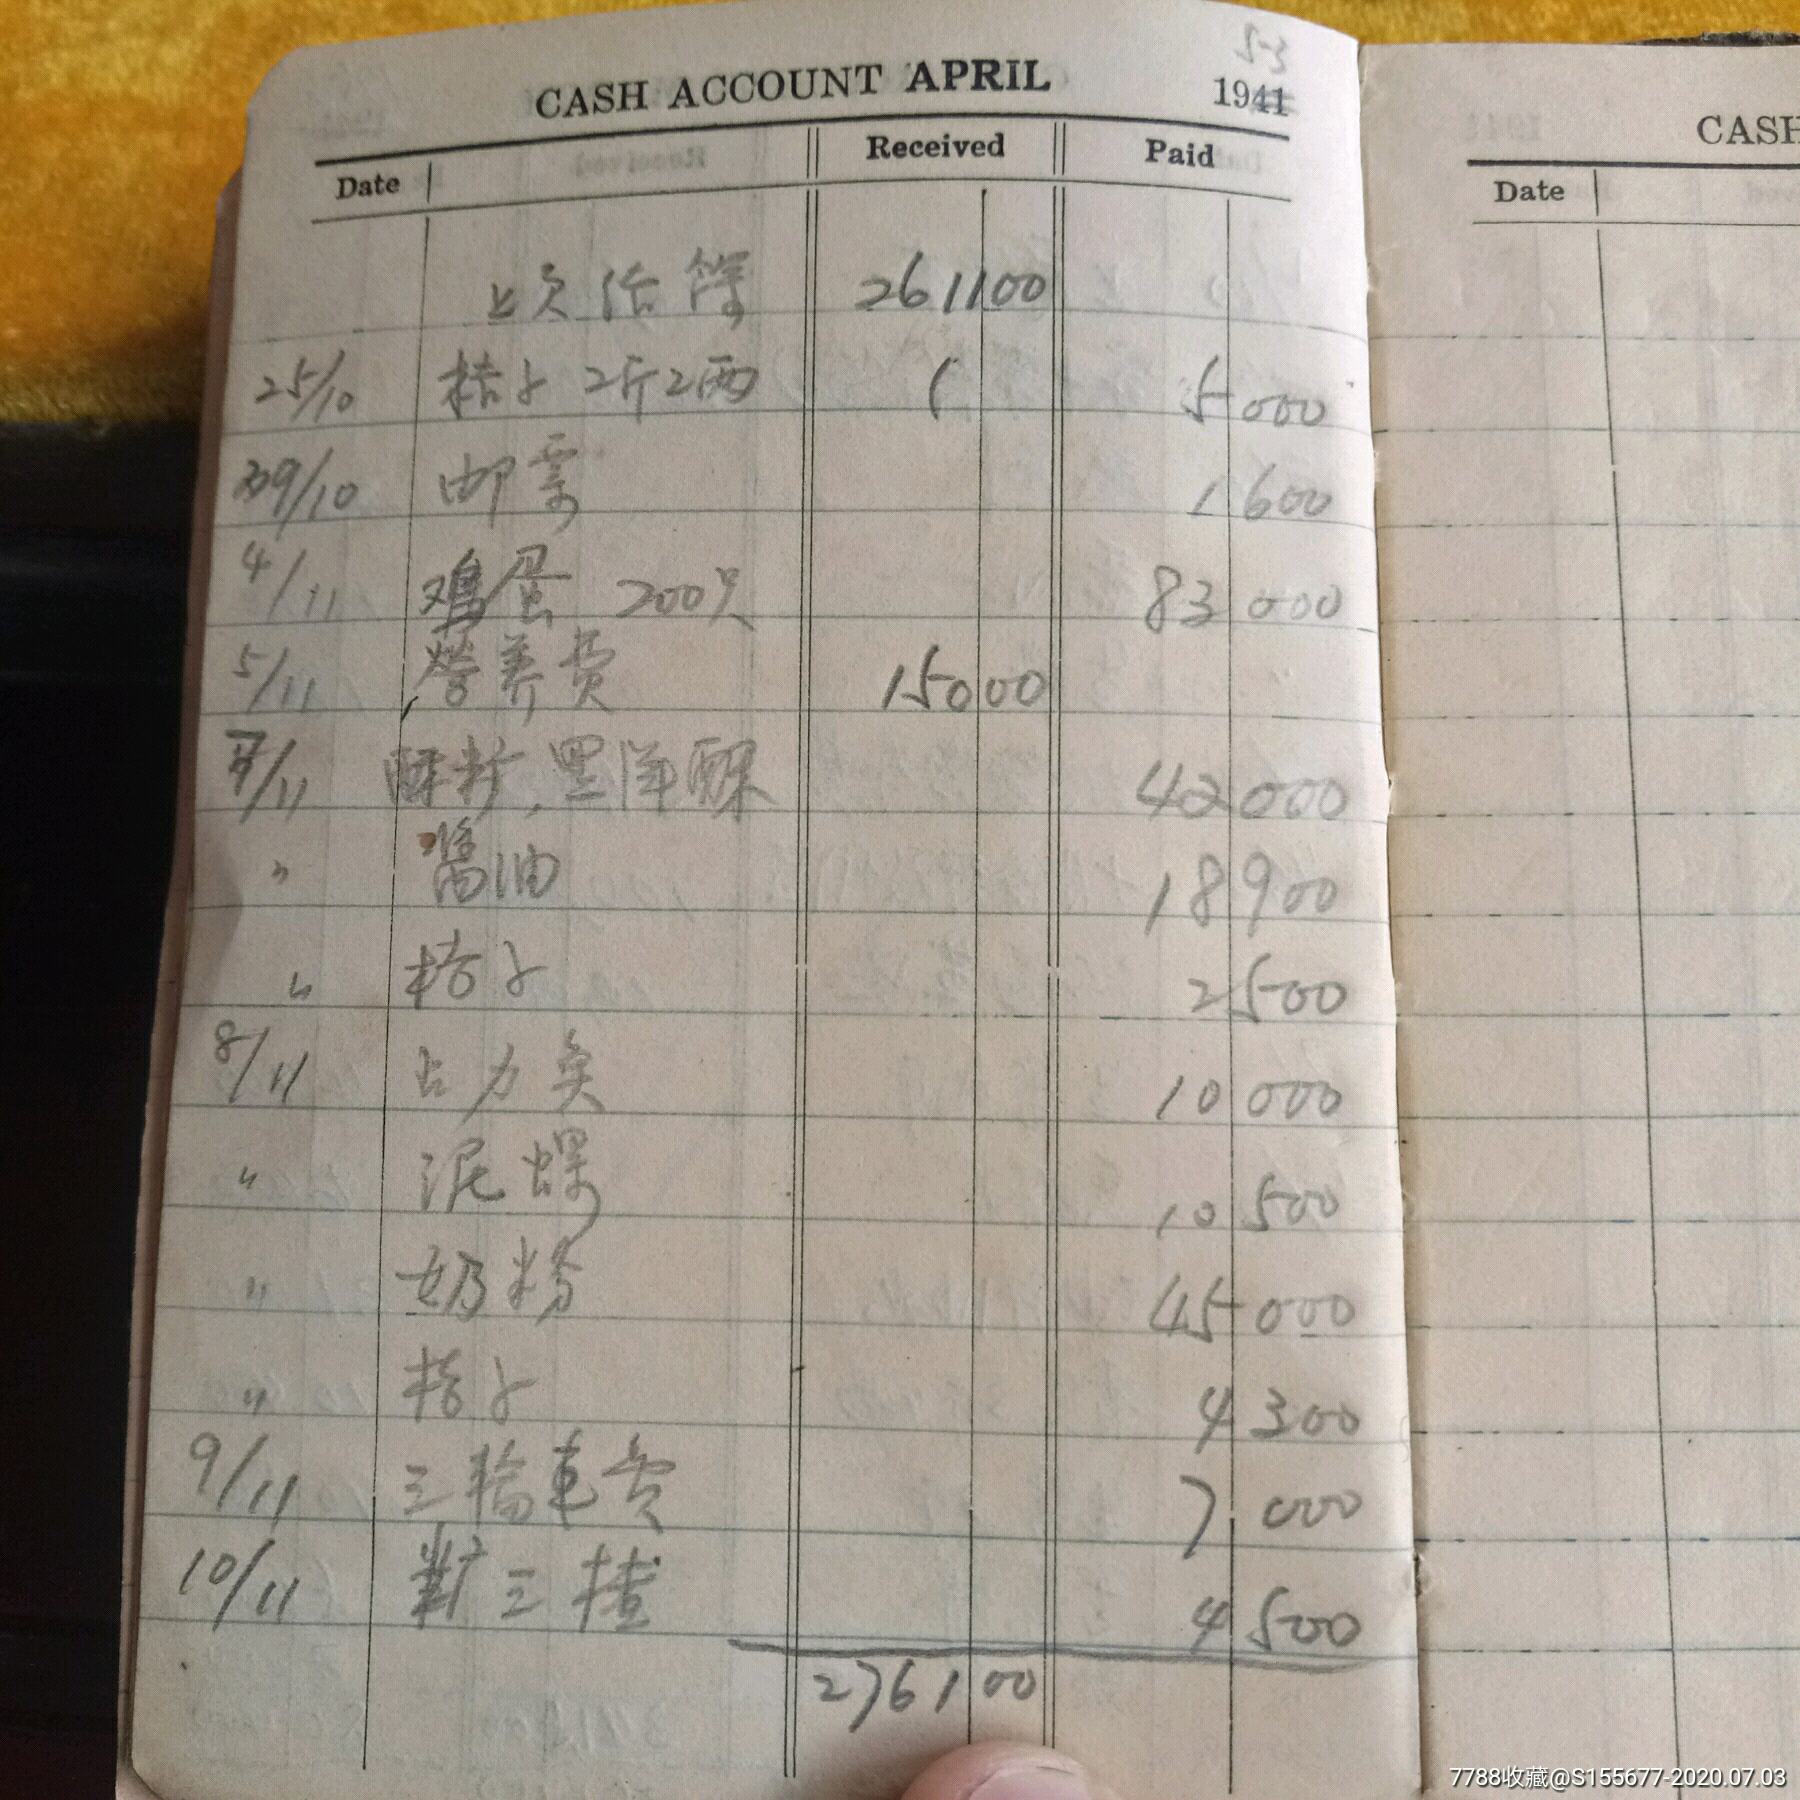 53
CASH ACCOUNT APRIL 1941
Date Received Paid
上页结 261100
25/10 桔子 2斤2两 5000
29/10 邮票 1600
4/11 鸡蛋 200只 83000
5/11 营养费 15000
7/11 酥 42000
〃 酱油 18900
〃 桔子 2500
8/11 占力 10000
〃 泥螺 10500
〃 奶粉 45000
〃 桔子 4300
9/11 三輪車费 7000
10/11 三 4500
276100
CASH
Date
7788收藏@S155677-2020.07.03